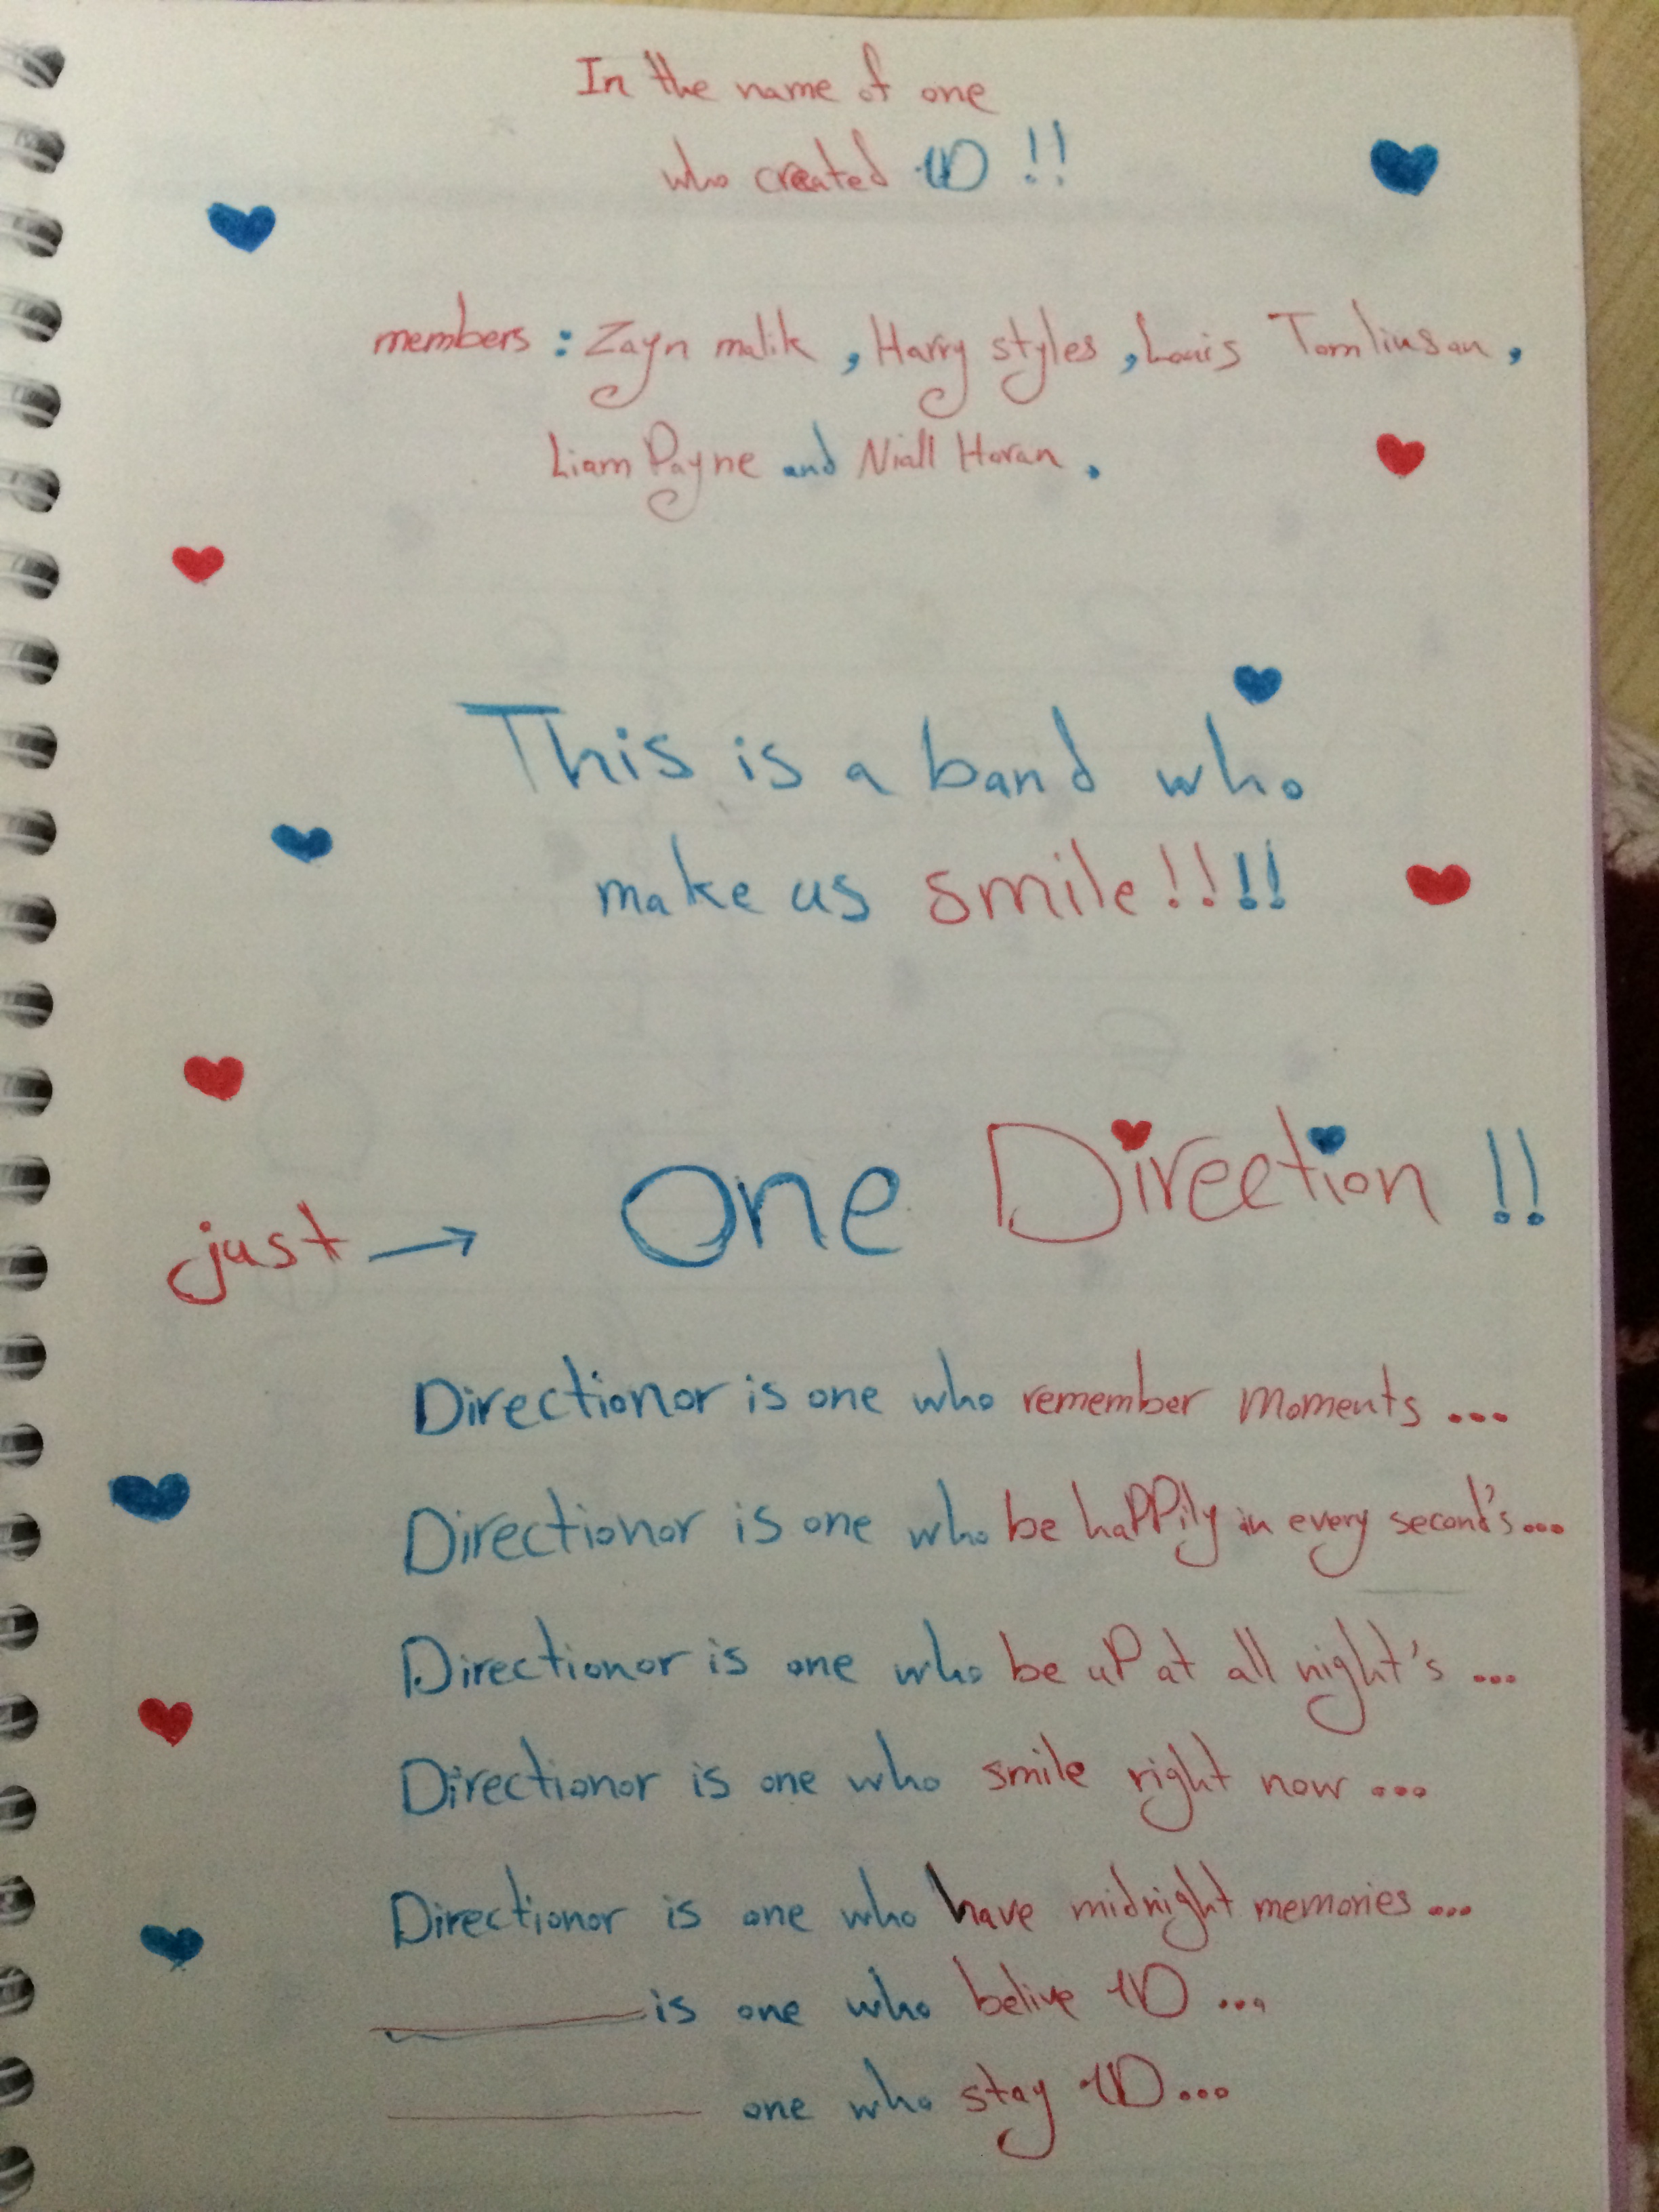 In the name of one
who created 1D !!
members : Zayn malik , Harry styles , Louis Tomlinson ,
Liam Payne and Niall Horan .
This is a band who
make us smile!!!!
just → One Direction !!
Directionor is one who remember moments ...
Directionor is one who be happily in every second's...
Directionor is one who be up at all night's ...
Directionor is one who smile right now ...
Directionor is one who have midnight memories ...
______ is one who belive 1D ...
______ one who stay 1D...